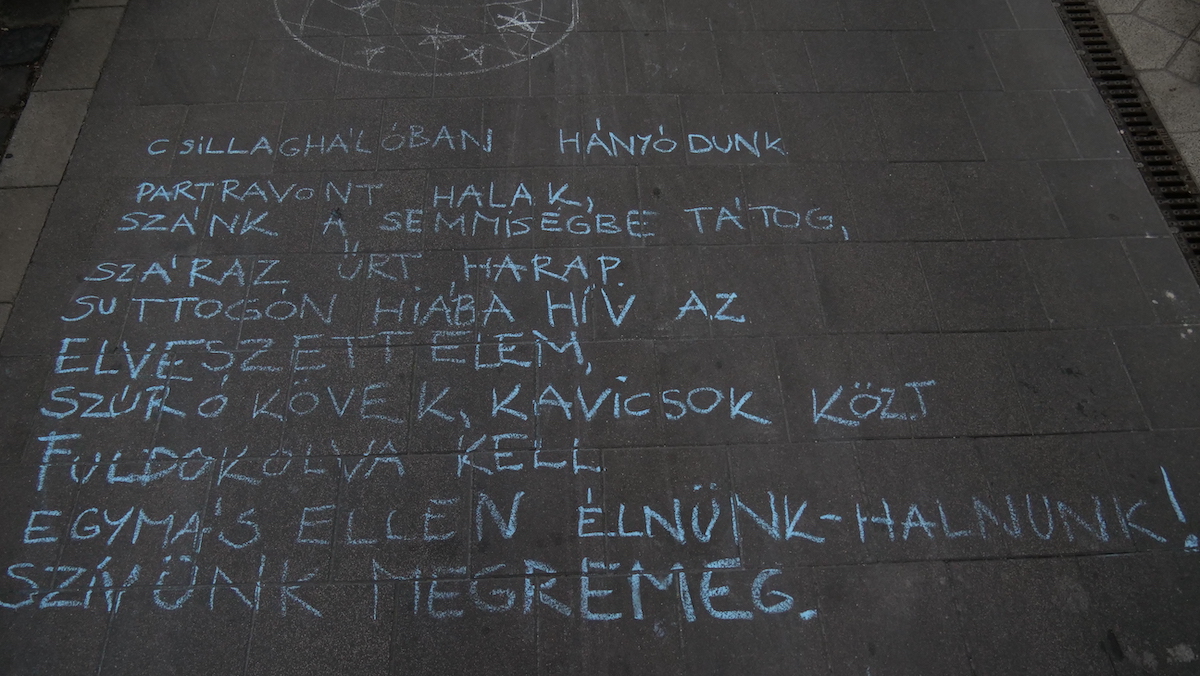 CSILLAGHÁLÓBAN HÁNYÓDUNK
PARTRAVONT HALAK,
SZÁNK A SEMMISÉGBE TÁTOG,
SZÁRAZ ŰRT HARAP.
SUTTOGÓN HIÁBA HÍV AZ
ELVESZETT ELEM,
SZÚRÓ KÖVEK, KAVICSOK KÖZT
FULDOKOLVA KELL
EGYMÁS ELLEN ÉLNÜNK-HALNUNK!
SZÍVÜNK MEGREMEG.